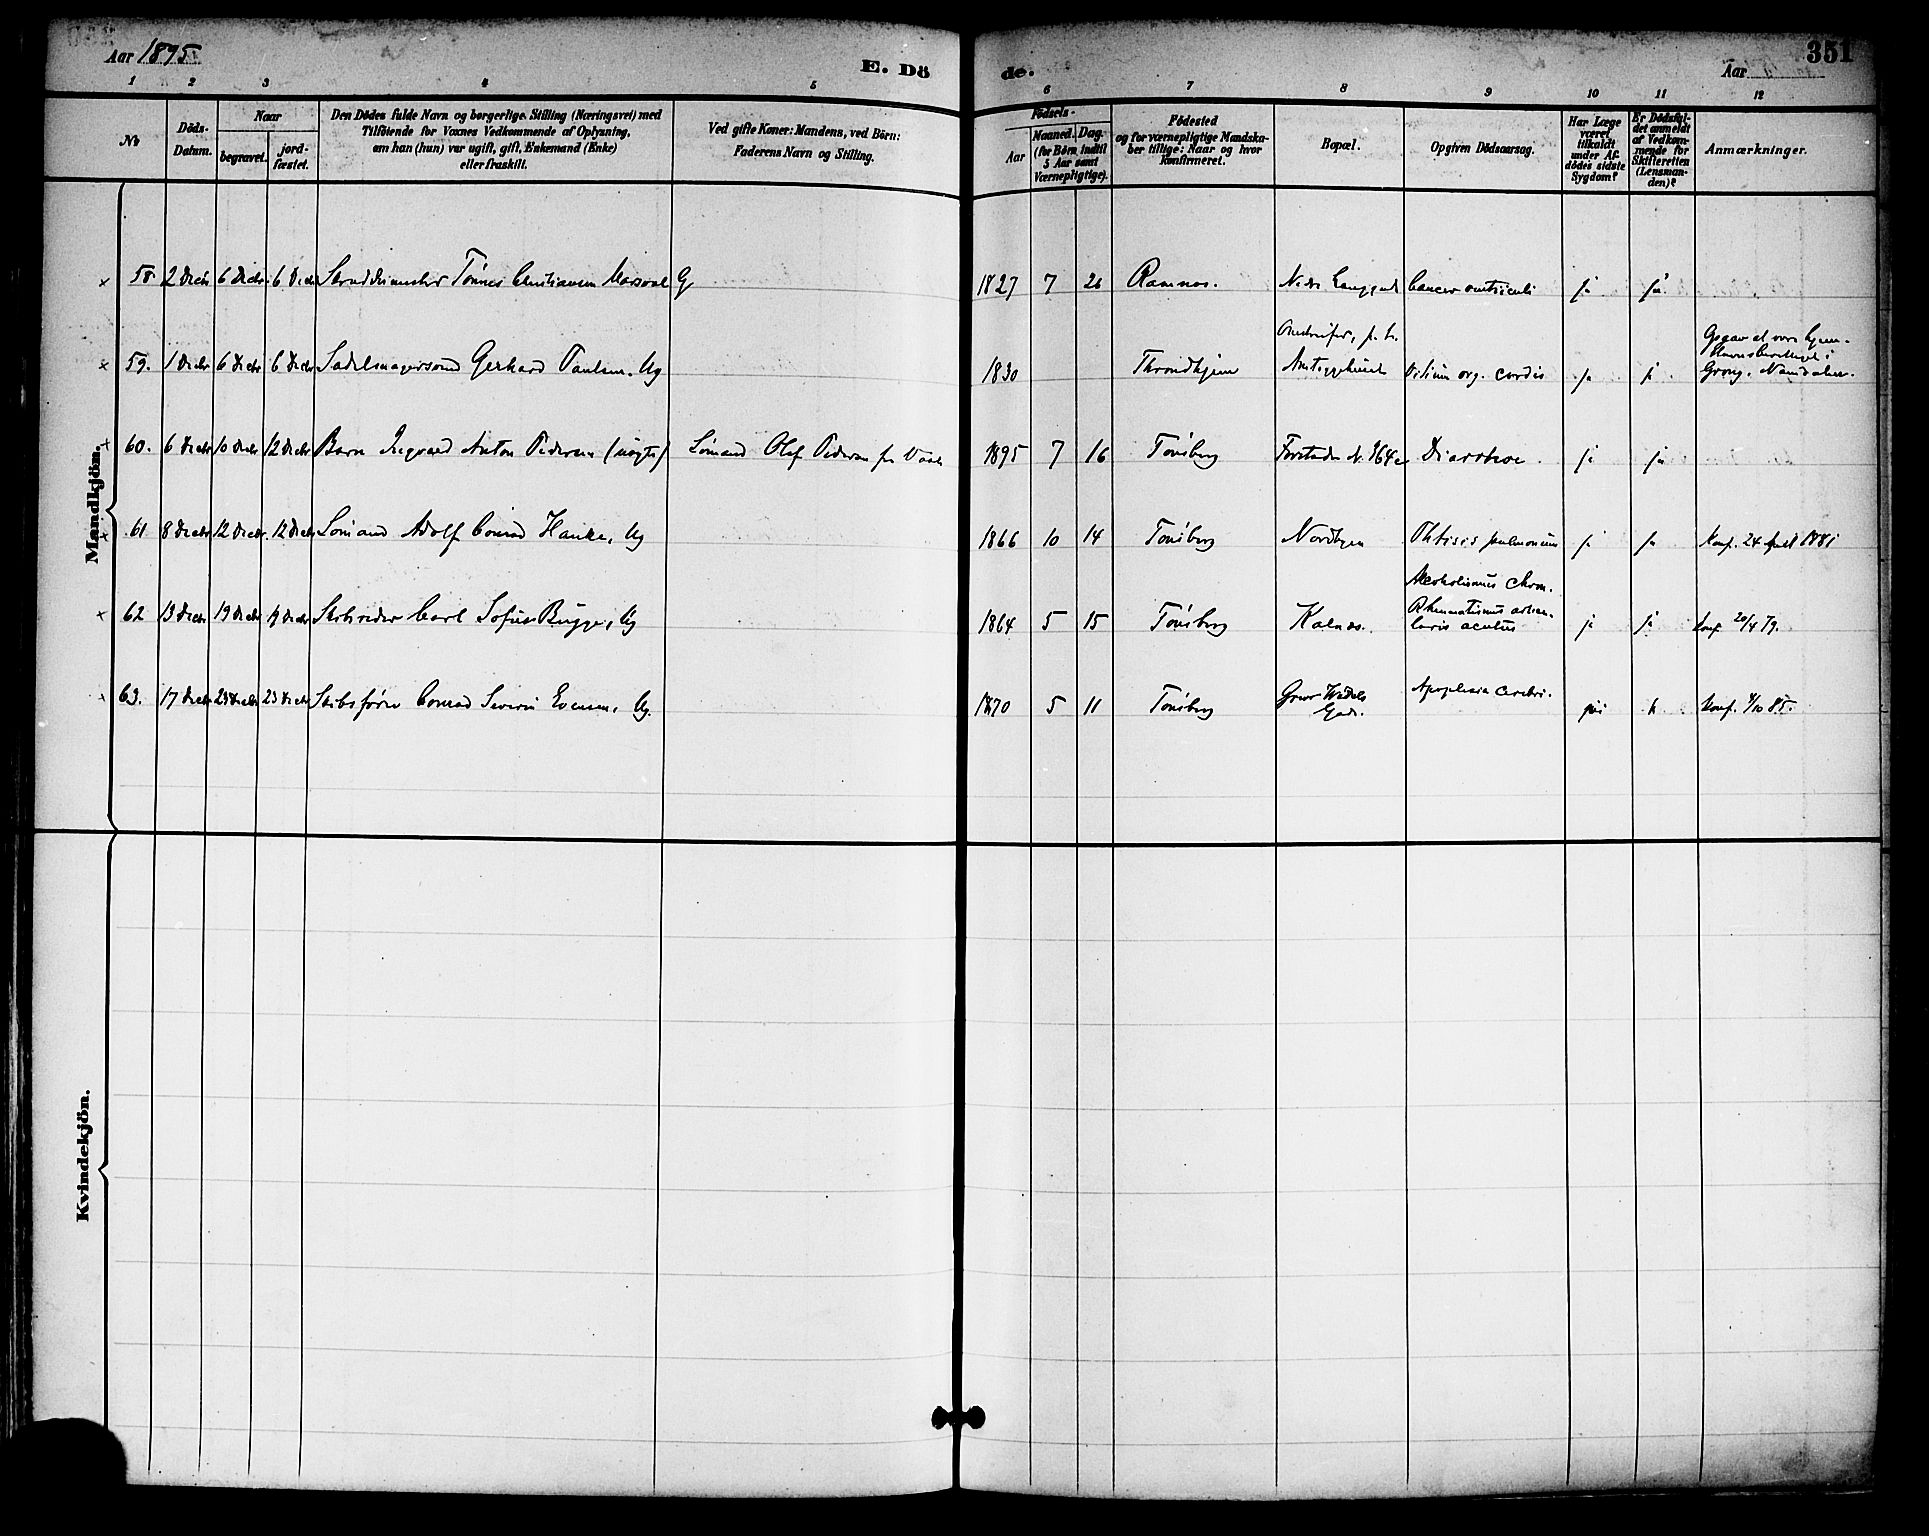 Aar 1895
E. Dö
de.
Aar
351
1 2 3 4 5
6 7 8 9 10 11 12
№
Döds-
Datum.
Naar
begravet.
jord-
fæstet.
Den Dödes fulde Navn og borgerlige Stilling (Næringsvei) med
Tilföiende for Voxnes Vedkommende af Oplysning,
om han (hun) var ugift, gift, Enkemand (Enke)
eller fraskilt.
Ved gifte Koner: Mandens, ved Börn:
Faderens Navn og Stilling.
Födsels-
Aar
Maaned. Dag.
(for Börn indtil
5 Aar samt
Værnepligtige).
Födested
og for værnepligtige Mandska-
ber tillige: Naar og hvor
konfirmeret.
Bopæl.
Opgiven Dödsaarsag.
Har Læge
været
tilkaldt
under Af-
dödes sidste
Sygdom?
Er Dödsfal-
det anmeldt
af Vedkom-
mende for
Skifteretten
(Lensman-
den)?
Anmærkninger.
Mandkjön.
58. 2 Decbr 6 Decbr. 6 Decbr Tönnes Christiansen G
1827 7 26 Ramnæs. Nedre Langgade Cancer ventriculi ja ja
59. 1 Decbr 6 Decbr 6 Decbr Sadelmagersvend Gerhard Paulsen. Ug
1830 Throndhjem Vitium org. cordis ja ja Grong, Namdalen.
60. 6 Decbr 10 Decbr 12 Decbr Barn Ingvard Anton Pedersen
Sömand Olaf Pedersen fra
1895 7 16 Tönsberg Diarrhoe. ja ja
61 8 Decbr 12 Decbr. 12 Decbr Sömand Adolf Conrad Hanke, Ug
1866 10 14 Tönsberg Nordbyen Phtisis pulmonum ja ja Konf. 24 April 1881
62 13 Decbr 19 Decbr 19 Decbr Skibsreder Carl Sofus Bugge, Ug
1864 5 15 Tönsberg Kalnæs. Alcoholismus chron.
Rheumatismus articu-
laris acutus ja ja Konf. 20/4 79.
63. 17 Decbr 23 Decbr 23 Decbr Skibsförer Conrad Severin Evensen, Ug.
1870 5 11 Tönsberg Grev Wedels
Gade. Apoplexia cerebri. Konf. 4/10 85.
Kvindekjön.